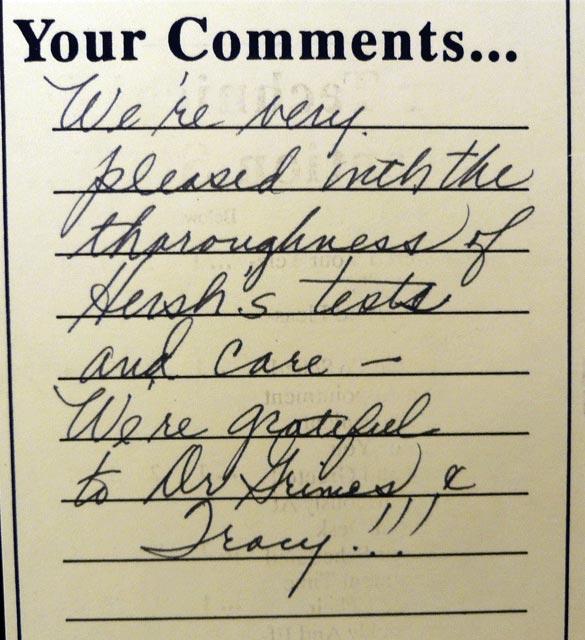 Your Comments...
We're very
pleased with the
thoroughness of
Hersh's tests
and care —
We're grateful
to Dr Grimes, &
Tracy...!!!